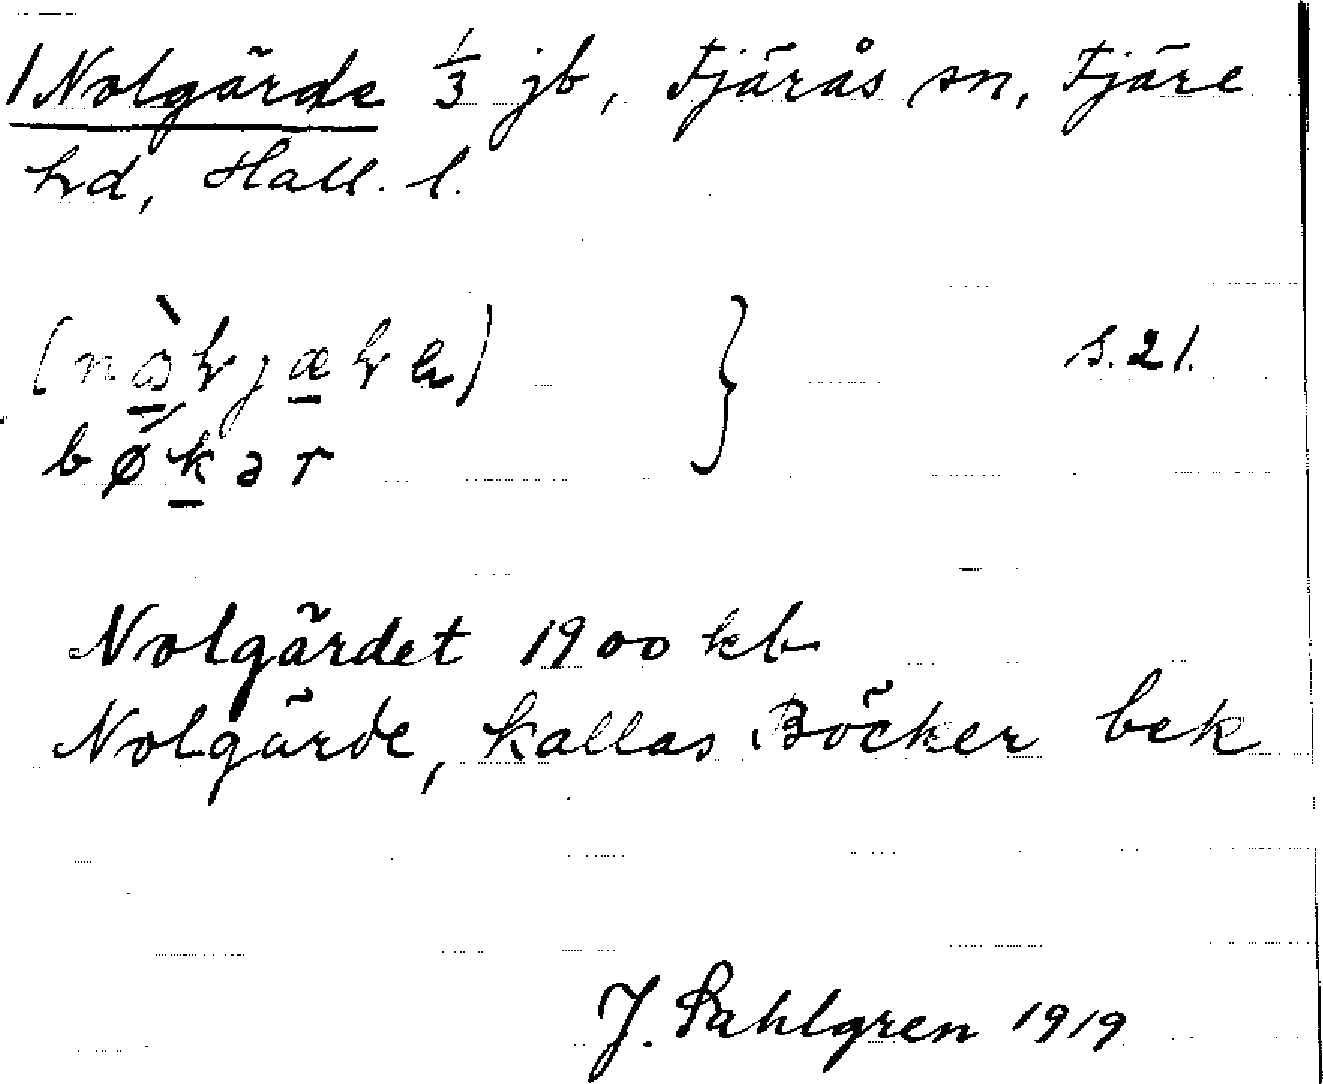 1 Nolgärde 1/3 jb, Fjärås sn, Fjäre
hd, Hall. l.
s. 21.
bøkər
Nolgärdet 1900 kb
Nolgärde, kallas Böcker bek
J. Sahlgren 1919